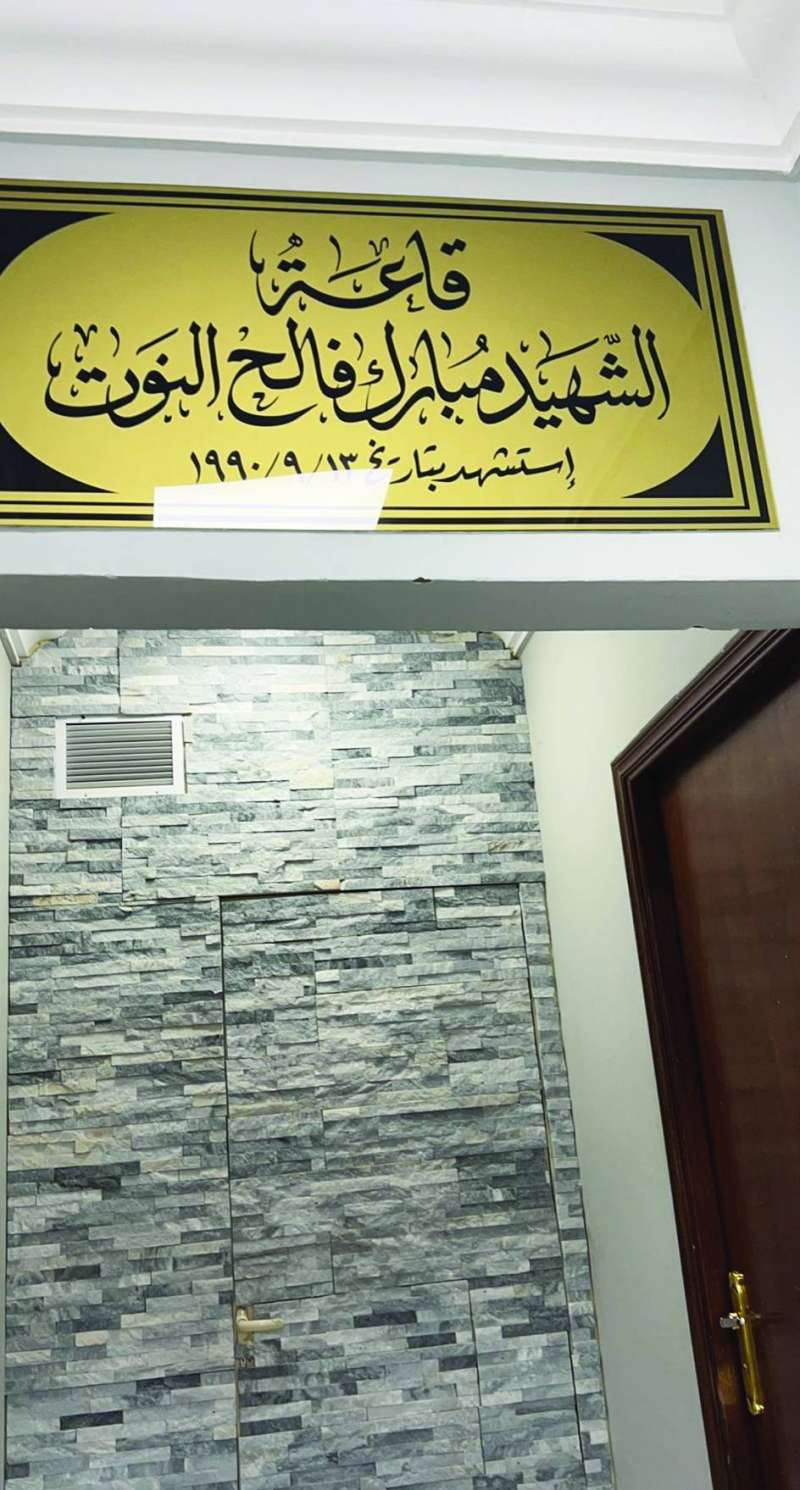 قاعَةُ
الشَّهَيَد مُبارك فالح النَوَت
إستشهد بتاريخ ١٣/٩/١٩٩٠